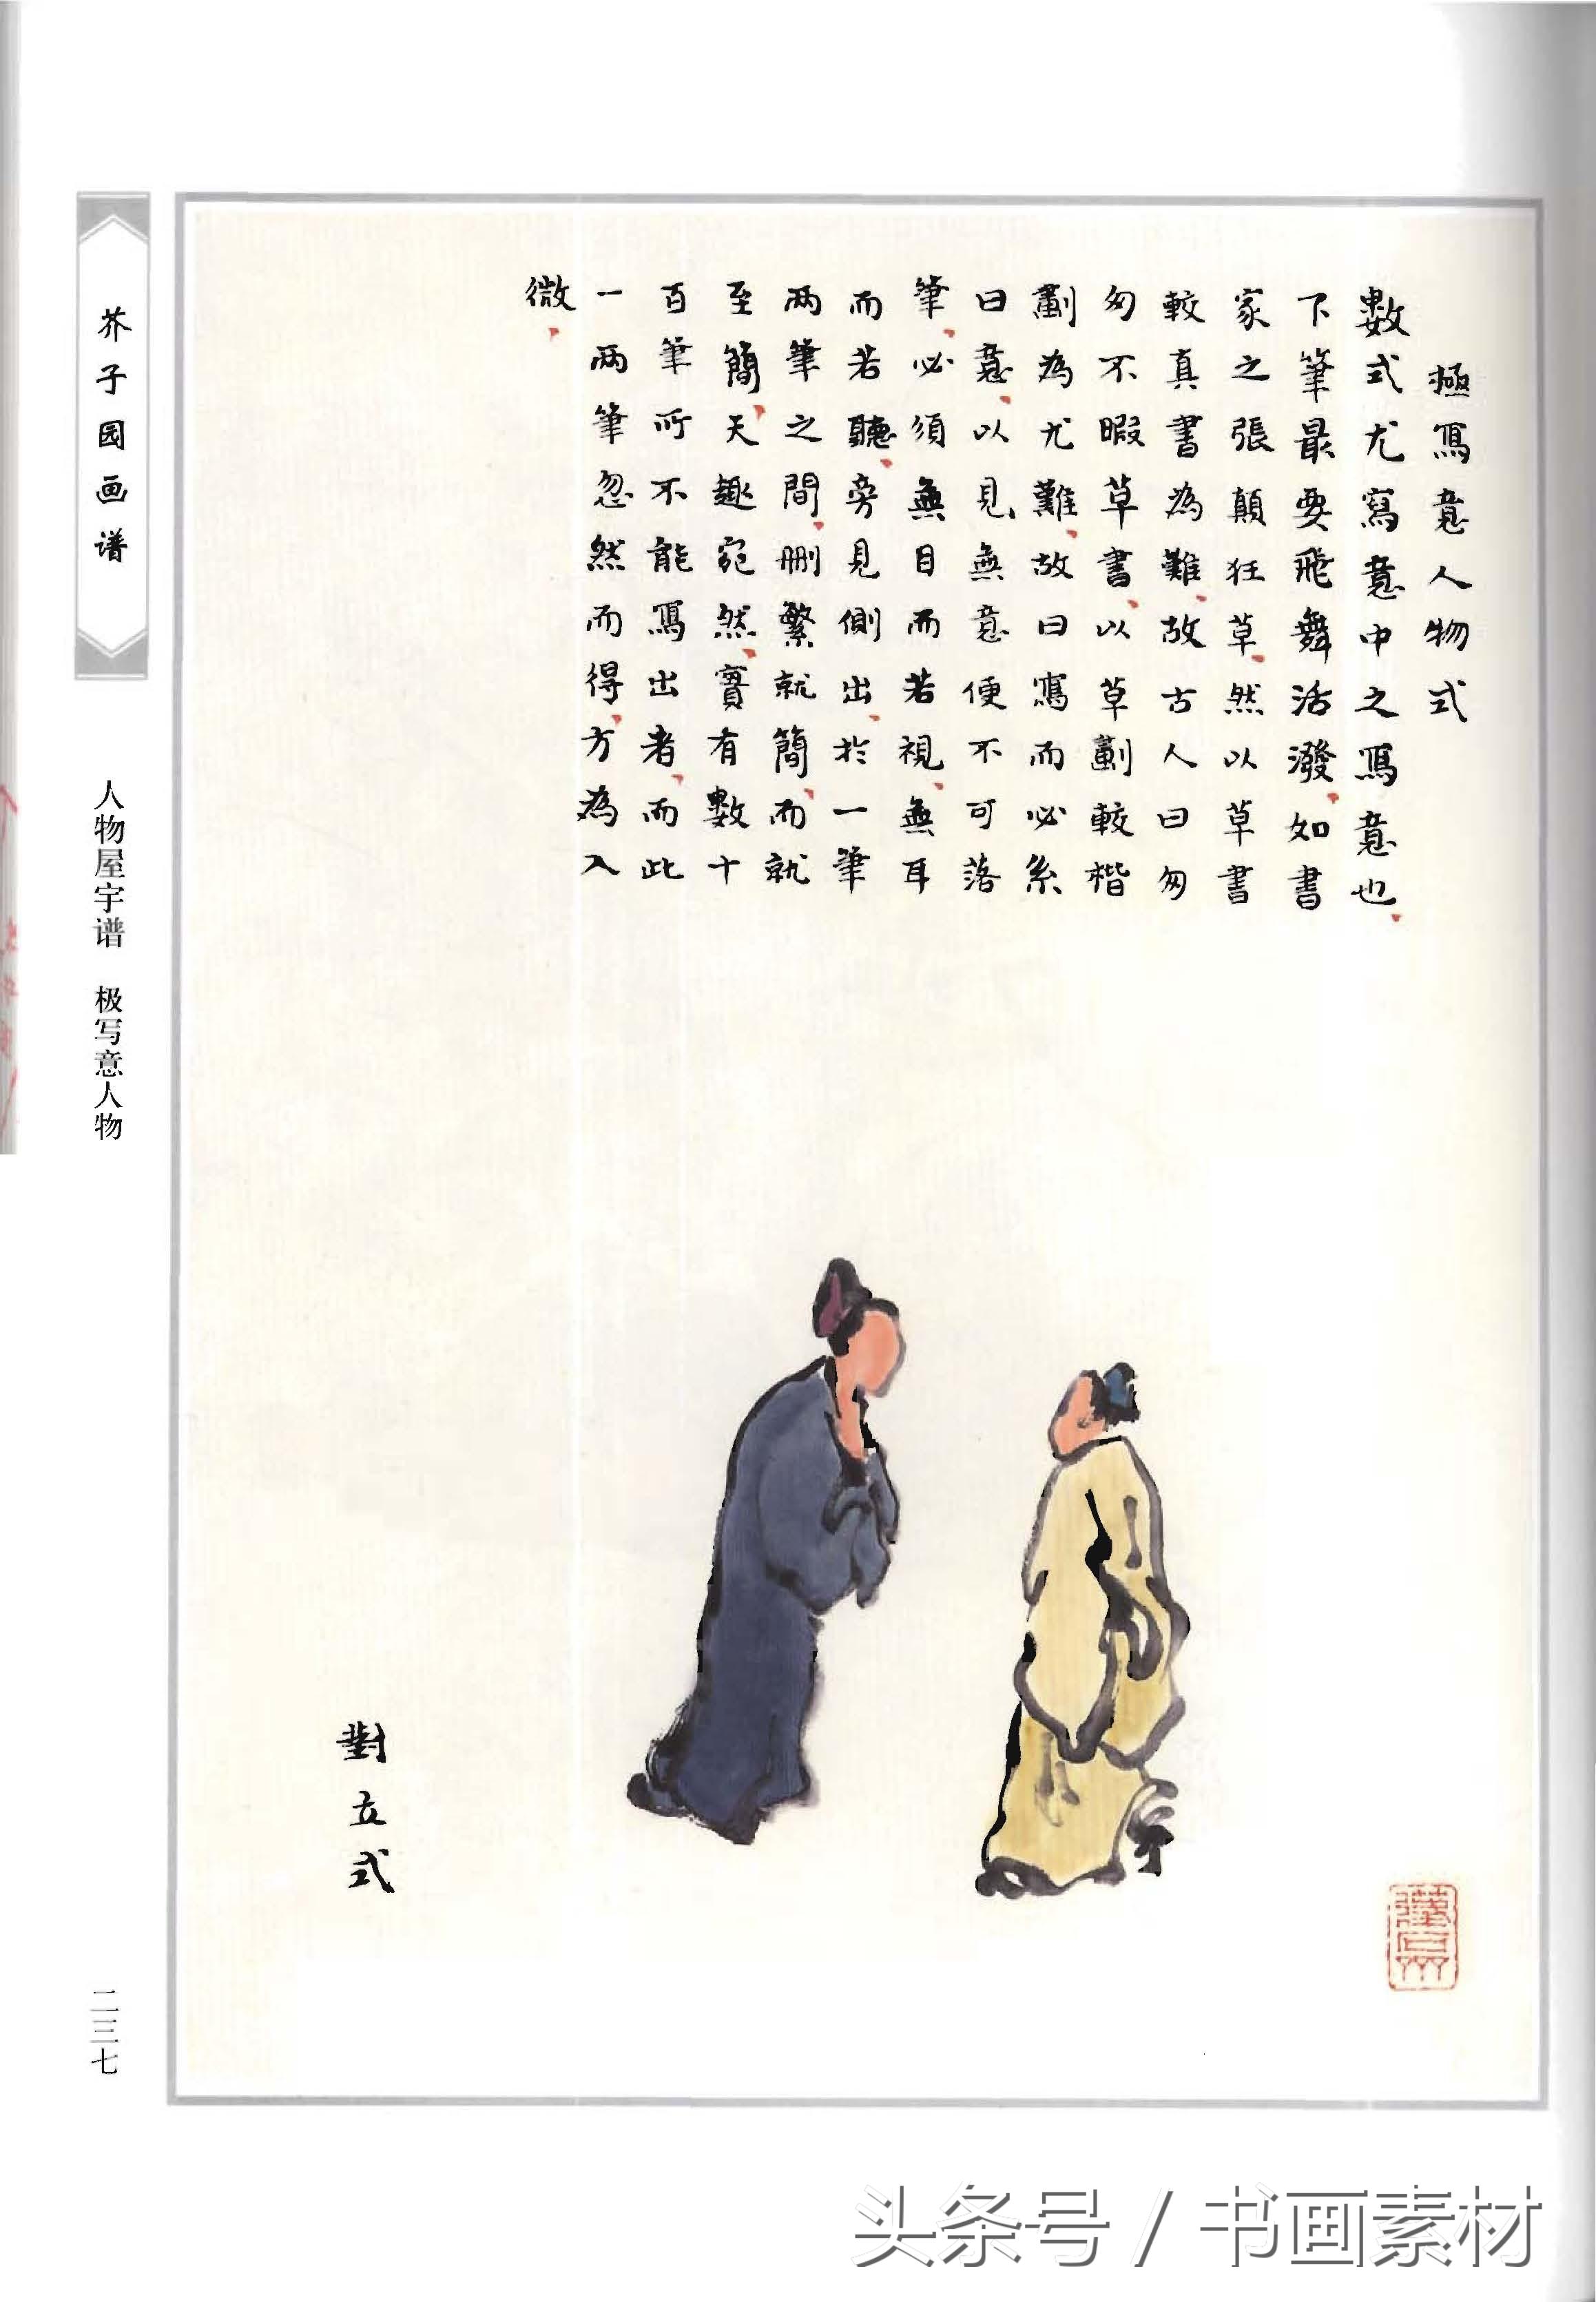 極寫意人物式
數式尤寫意中之寫意也
下筆最要飛舞活潑如書
家之張顛狂草然以草書
較真書為難故古人曰匆
匆不暇草書以草劃較楷
劃為尤難故曰寫而必系
曰意以見無意便不可落
筆必須無目而若視無耳
而若聽旁見側出於一筆
两筆之間刪繁就簡而就
至簡天趣宛然實有數十
百筆所不能寫出者而此
一两筆忽然而得方為入
微
對立式
芥子园画谱
人物屋宇谱 极写意人物
二三七
头条号 / 书画素材